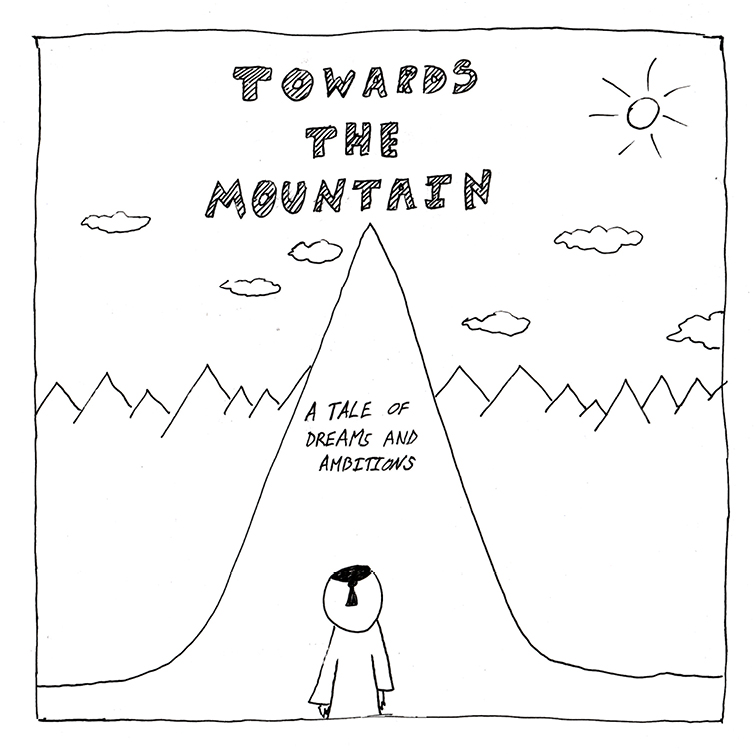 TOWARDS
THE
MOUNTAIN
A TALE OF
DREAMS AND
AMBITIONS